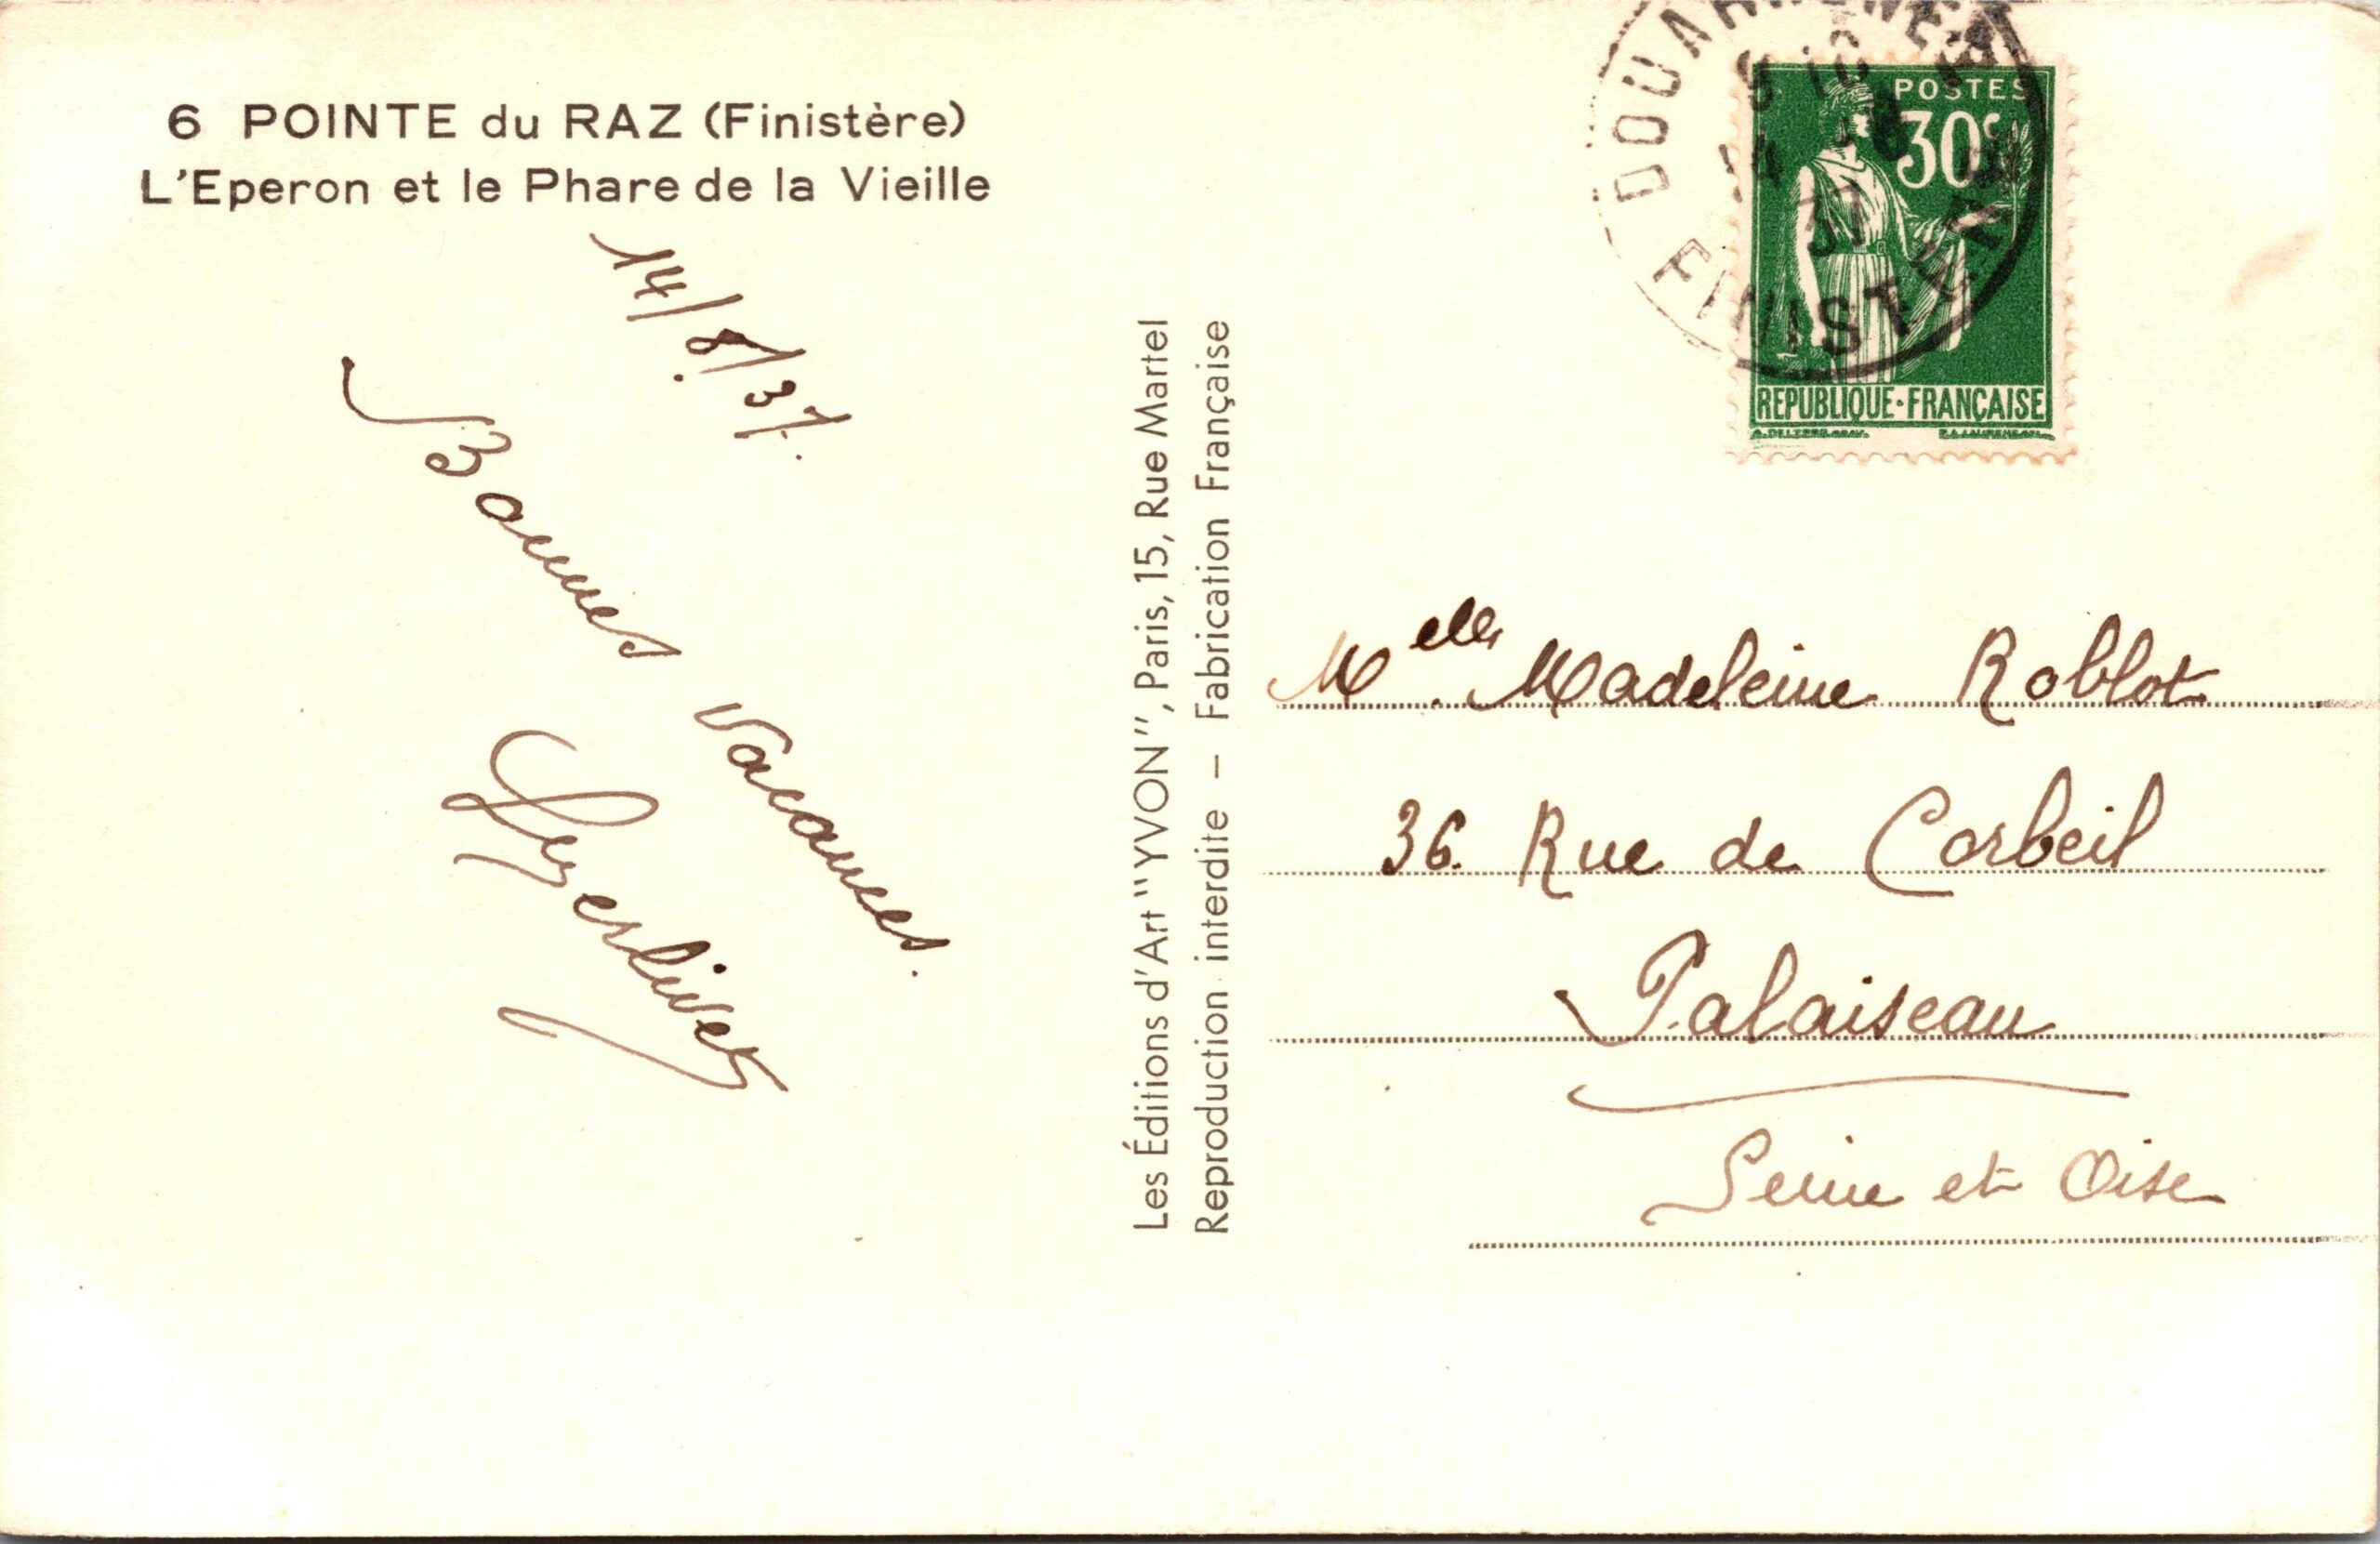 6 POINTE du RAZ (Finistère)
L'Eperon et le Phare de la Vieille
14/8/37.
Bonnes vacances.
Les Éditions d'Art "YVON", Paris, 15, Rue Martel
Reproduction interdite – Fabrication Française
DOUARNENEZ
14 8
37
FINISTÈRE
POSTES
30c
REPUBLIQUE·FRANÇAISE
Melle Madeleine Roblot
36. Rue de Corbeil
Palaiseau
Seine et Oise